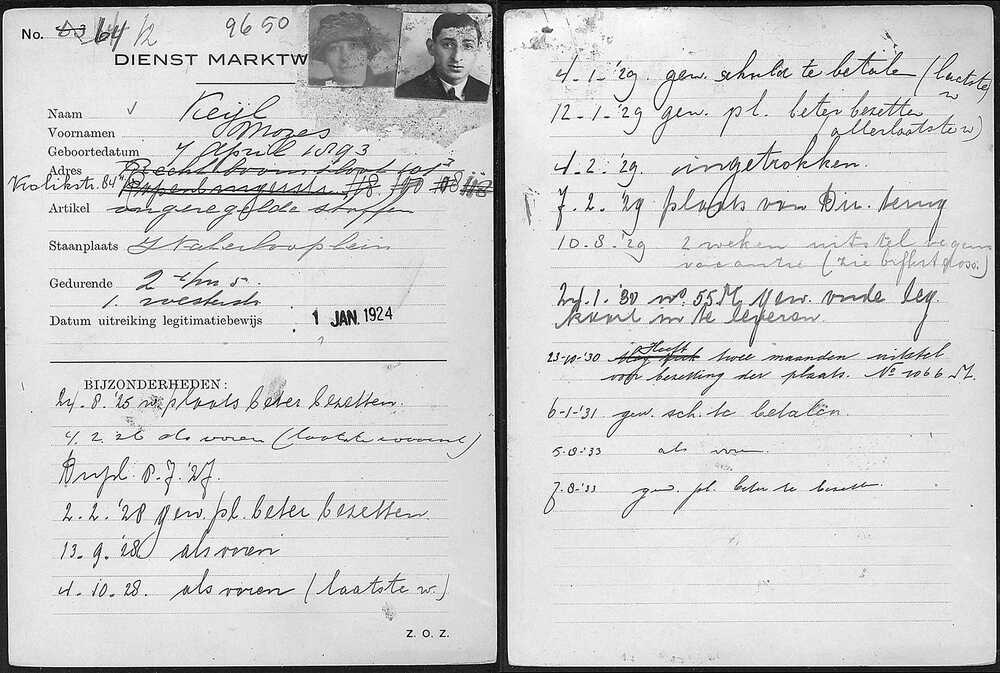 No. 64/2 9650
DIENST MARKTW
Naam Keijl
Voornamen Mozes
Geboortedatum 7 April 1893
Adres Rechtboomsloot
Krolikstr. 84 Rapenburgerstr.
Artikel ongeregelde stoffen
Staanplaats Waterlooplein
Gedurende 2
1.
Datum uitreiking legitimatiebewijs 1 JAN. 1924
BIJZONDERHEDEN:
24.8.'25 w. plaats beter bezetten.
4.2.26 als voren (laatste
8.7.'27.
2.2.'28 gew. pl. beter bezetten.
13-9.'28. als voren
4.10.28. als voren (laatste w.)
Z. O. Z.
4-1-'29. gew. schuld te betalen (laatste
w
12-1-'29 gew. pl. beter bezetten
allerlaatste w)
4-2-'29 ingetrokken.
7.2.'29 plaats van Dir. terug
10.8.'29 2 weken uitstel wegens
vacantie (zie
24.1.'30 no. 55 M gew. oude leg.
kaart in te leveren.
23-10-'30 Heeft twee maanden uitstel
voor bezetting der plaats. No 1066 M.
6-1-'31 gew. sch. te betalen.
5-8-'33 als voren.
7-8-'33 gew. pl. beter te bezetten.